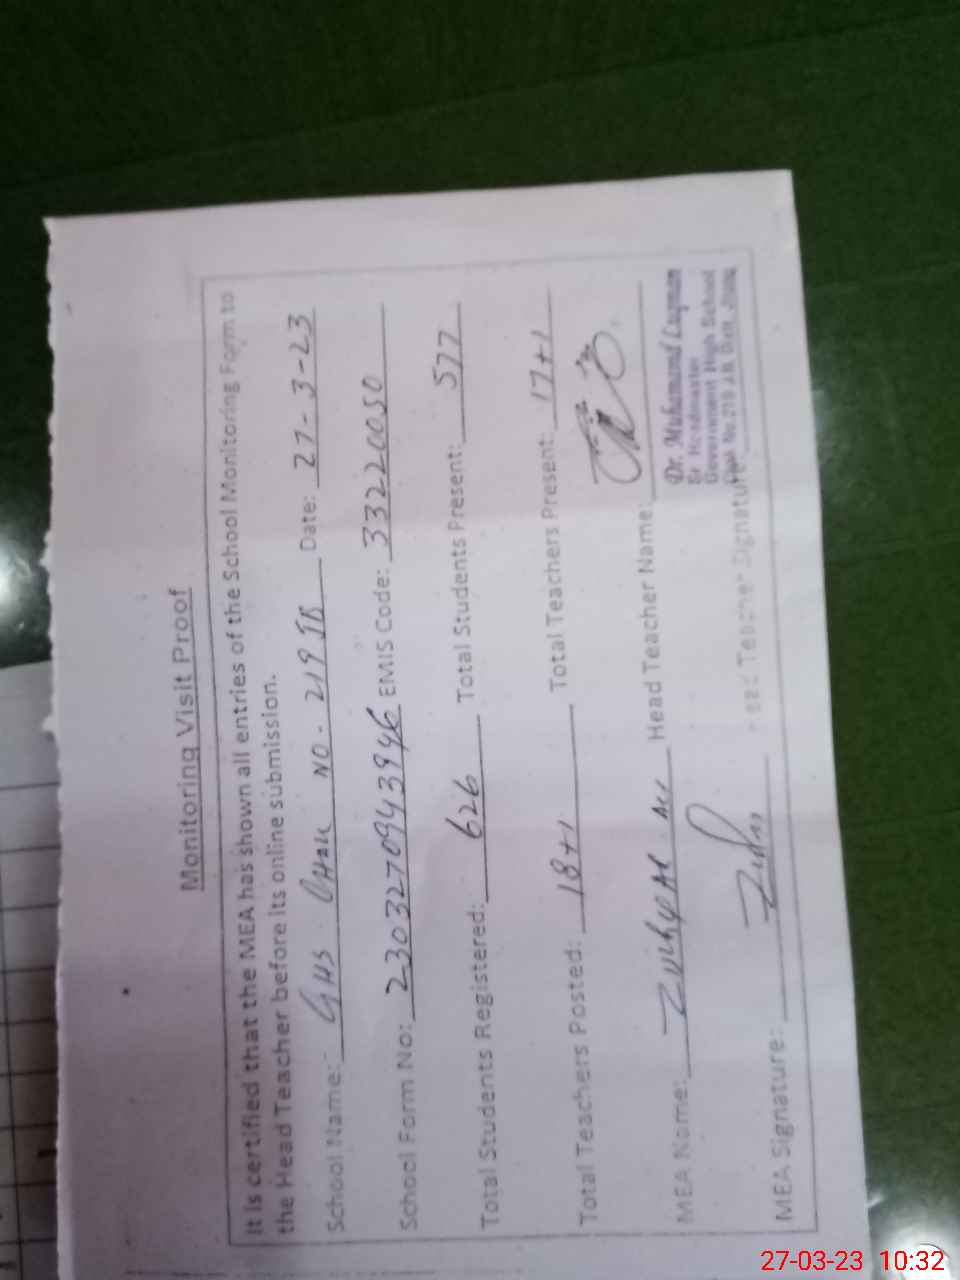 Monitoring Visit Proof
It is certified that the MEA has shown all entries of the School Monitoring Form to
the Head Teacher before its online submission.
School Name:- GHS. CHAK NO- 219 JB Date: 27-3-23
School Form No: 2303270943946 EMIS Code: 33220050
Total Students Registered: 626 Total Students Present: 577
Total Teachers Posted: 18+1 Total Teachers Present: 17+1
MEA Name: Zulfiqar Head Teacher Name:
Dr. Muhammad Luqman
Sr. Headmaster
Government High School
Chak No.219 J.B. Distt. Jhang
MEA Signature: Head Teacher Signature:
27-03-23 10:32